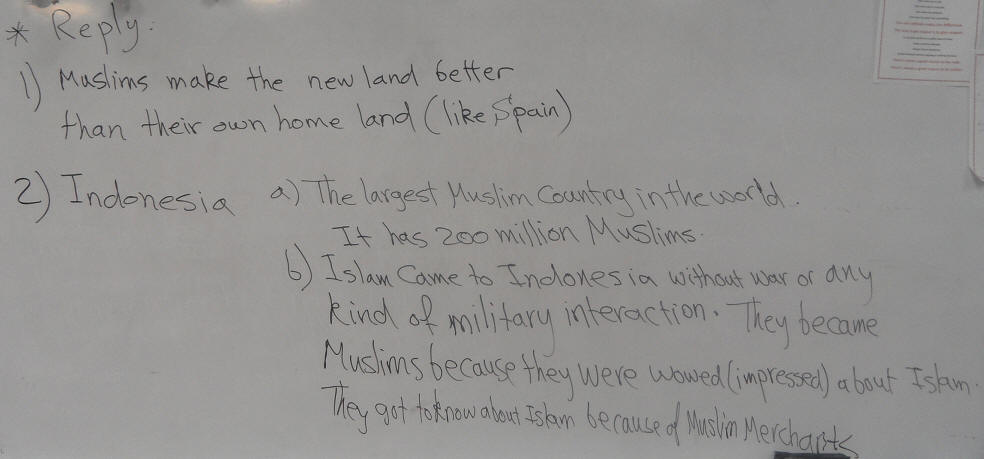 * Reply:
1) Muslims make the new land better
than their own home land (like Spain)
2) Indonesia a) The largest Muslim Country in the world.
It has 200 million Muslims.
b) Islam Came to Indonesia without war or any
kind of military interaction. They became
Muslims because they were wowed (impressed) about Islam.
They got to know about Islam because of Muslim Merchants